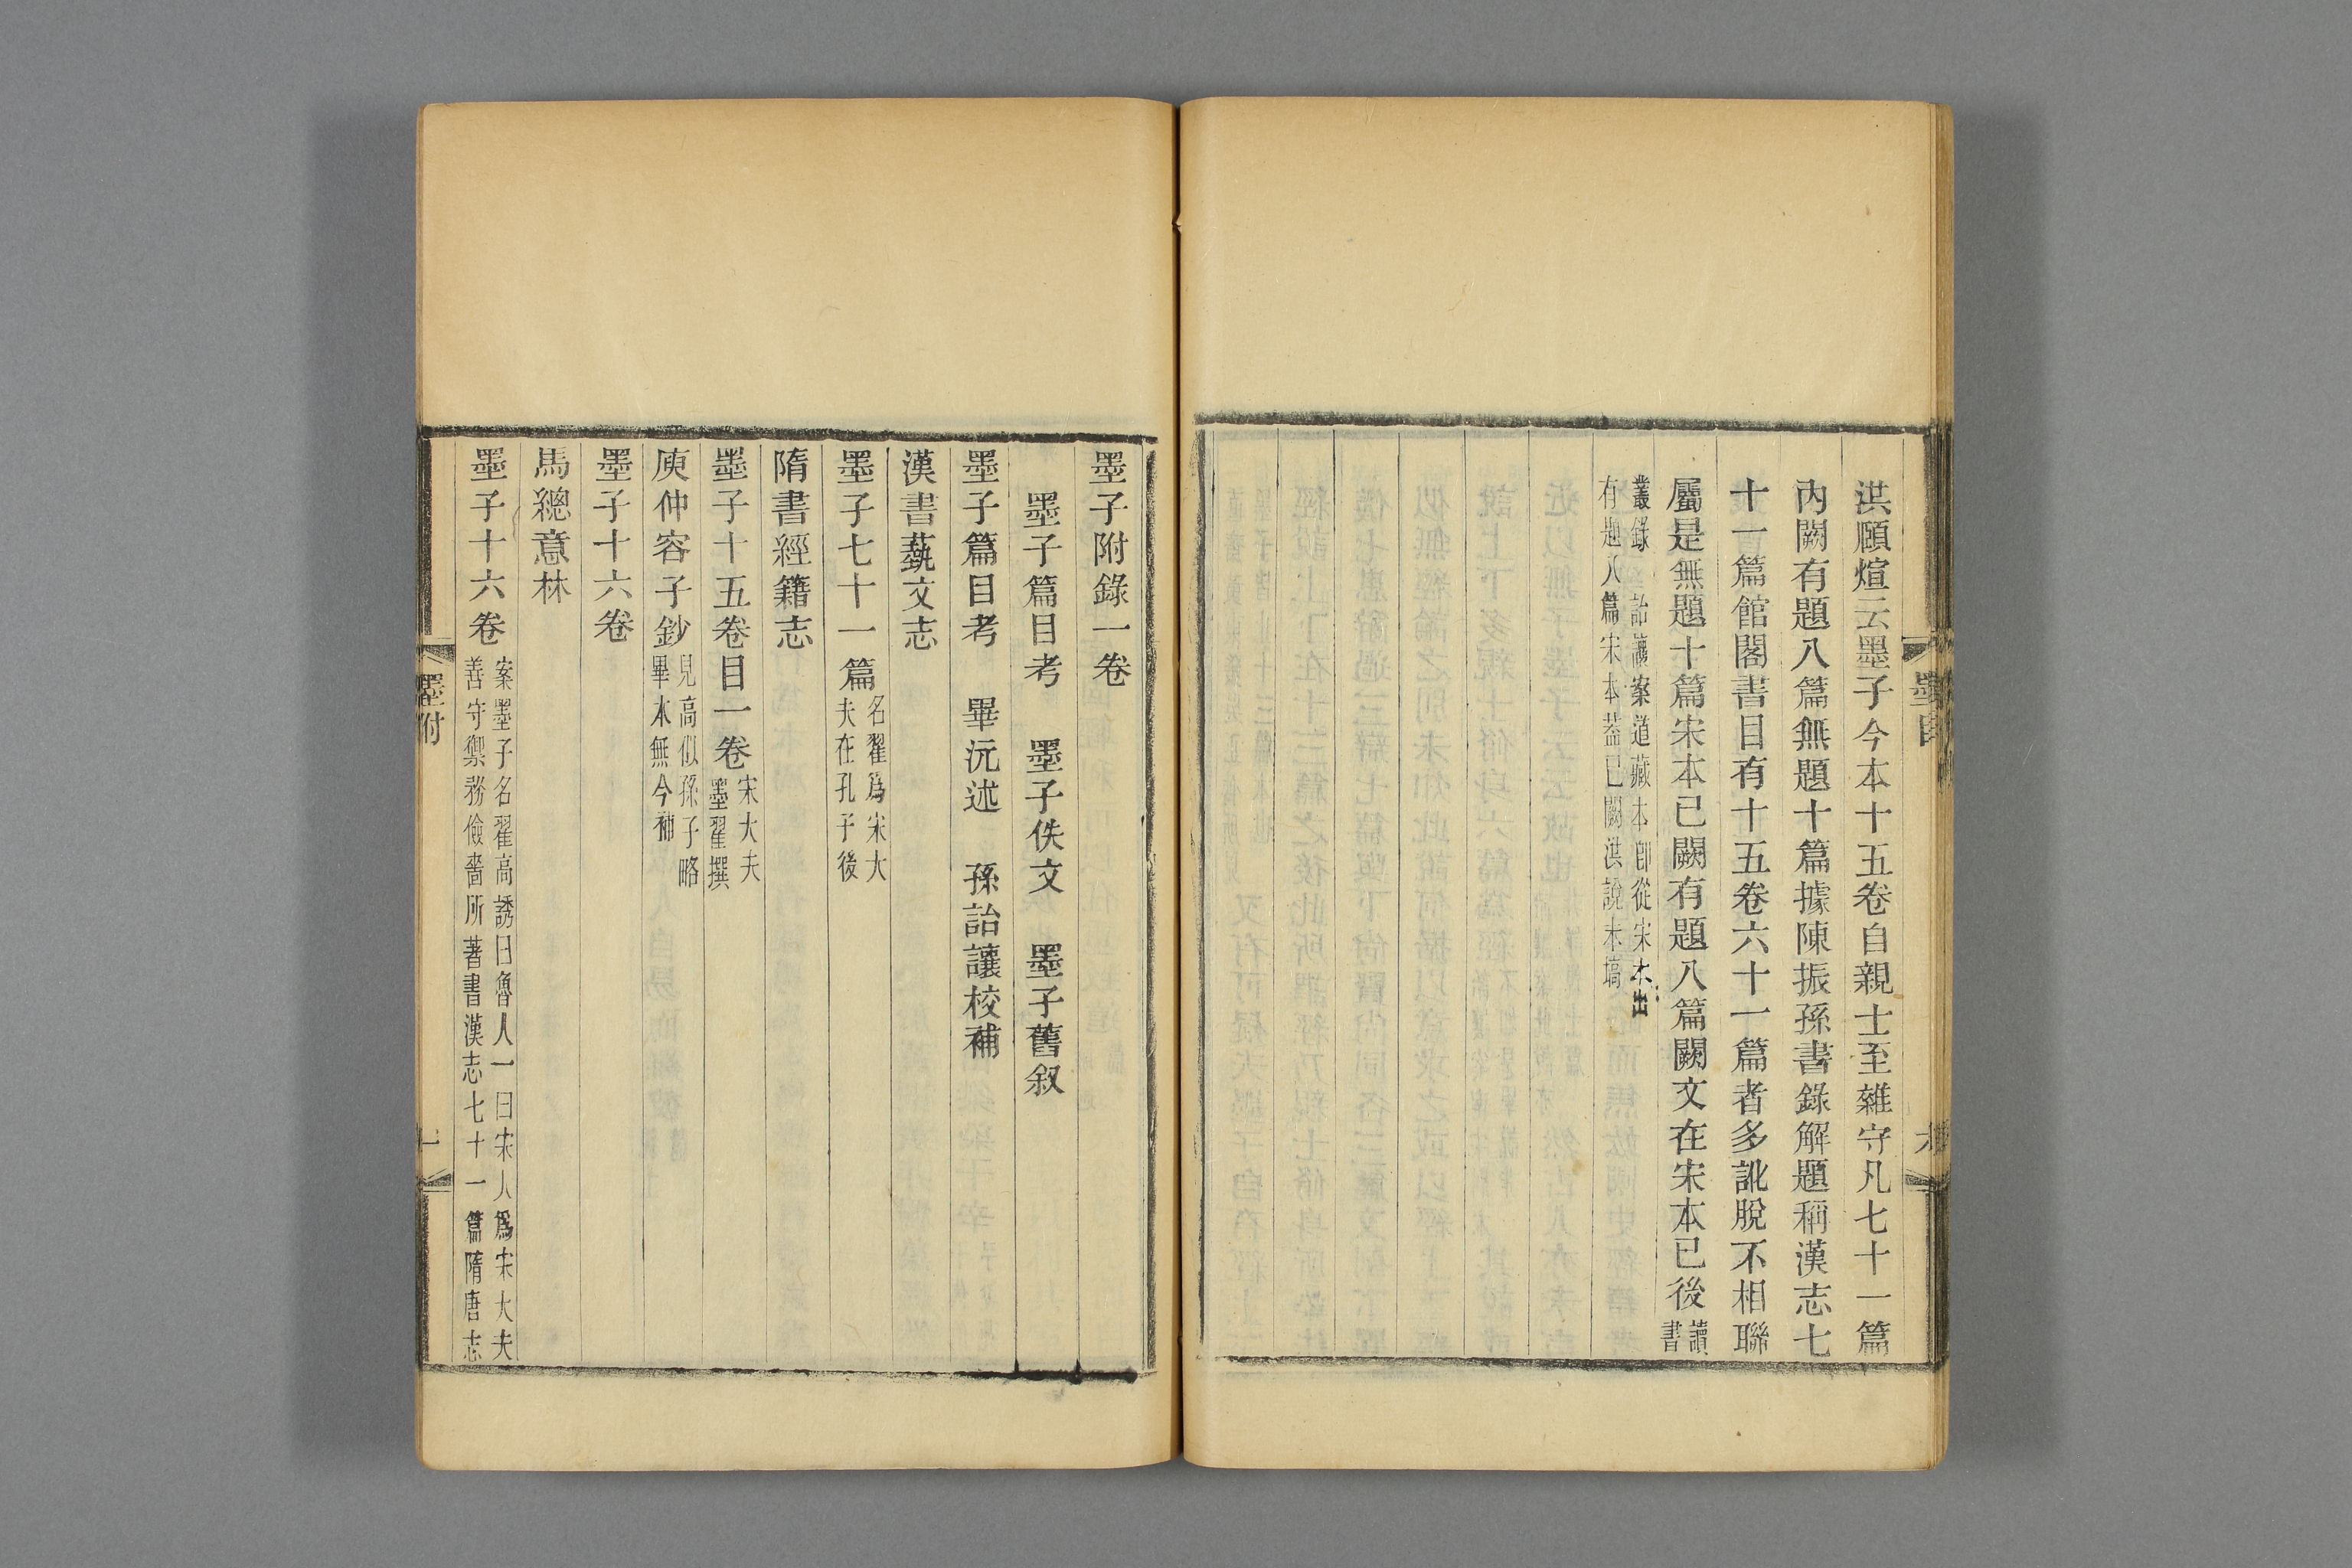 洪頤煊云墨子今本十五卷自親士至雜守凡七十一篇
內闕有題八篇無題十篇據陳振孫書錄解題稱漢志七
十一篇館閣書目有十五卷六十一篇者多訛脫不相聯
屬是無題十篇宋本已闕有題八篇闕文在宋本已後讀書
叢錄 詒讓案道藏本卽從宋本出
有題八篇宋本蓋已闕洪說未塙
墨子附錄一卷
墨子篇目考 墨子佚文 墨子舊叙
墨子篇目考 畢沅述 孫詒讓校補
漢書蓺文志
墨子七十一篇名翟爲宋大夫在孔子後
隋書經籍志
墨子十五卷目一卷宋大夫墨翟撰
庾仲容子鈔見高似孫子略畢本無今補
墨子十六卷
馬總意林
墨子十六卷案墨子名翟高誘曰魯人一曰宋人爲宋大夫
善守禦務儉嗇所著書漢志七十一篇隋唐志
墨附
一